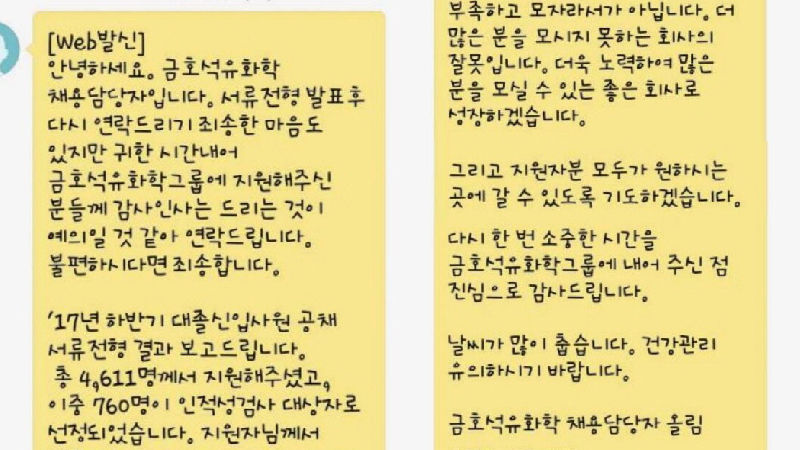 [Web발신]
안녕하세요. 금호석유화학
채용담당자입니다. 서류전형 발표후
다시 연락드리기 죄송한 마음도
있지만 귀한 시간내어
금호석유화학그룹에 지원해주신
분들께 감사인사는 드리는 것이
예의일 것 같아 연락드립니다.
불편하시다면 죄송합니다.
‘17년 하반기 대졸신입사원 공채
서류전형 결과 보고드립니다.
총 4,611명께서 지원해주셨고,
이중 760명이 인적성검사 대상자로
선정되었습니다. 지원자님께서
부족하고 모자라서가 아닙니다. 더
많은 분을 모시지 못하는 회사의
잘못입니다. 더욱 노력하여 많은
분을 모실 수 있는 좋은 회사로
성장하겠습니다.
그리고 지원자분 모두가 원하시는
곳에 갈 수 있도록 기도하겠습니다.
다시 한 번 소중한 시간을
금호석유화학그룹에 내어 주신 점
진심으로 감사드립니다.
날씨가 많이 춥습니다. 건강관리
유의하시기 바랍니다.
금호석유화학 채용담당자 올림